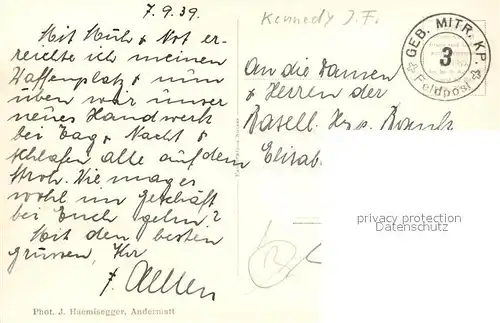 7.9.39.
Mit Müh & Not er-
reichte ich meinen
Waffenplatz & nun
üben wir unser
neues Handwerk
bei Tag & Nacht &
schlafen alle auf dem
Stroh. Wie mag es
wohl im Geschäft
bei Euch gehn?
Mit den besten
grüssen, Ihr
Phot. J. Haemisegger, Andermatt
Kennedy J.F.
GEB. MITR. KP.
3
Feldpost
An die Damen
& Herren der
Basell.
Elisab
privacy protection
www.ansichtskarten-center.de